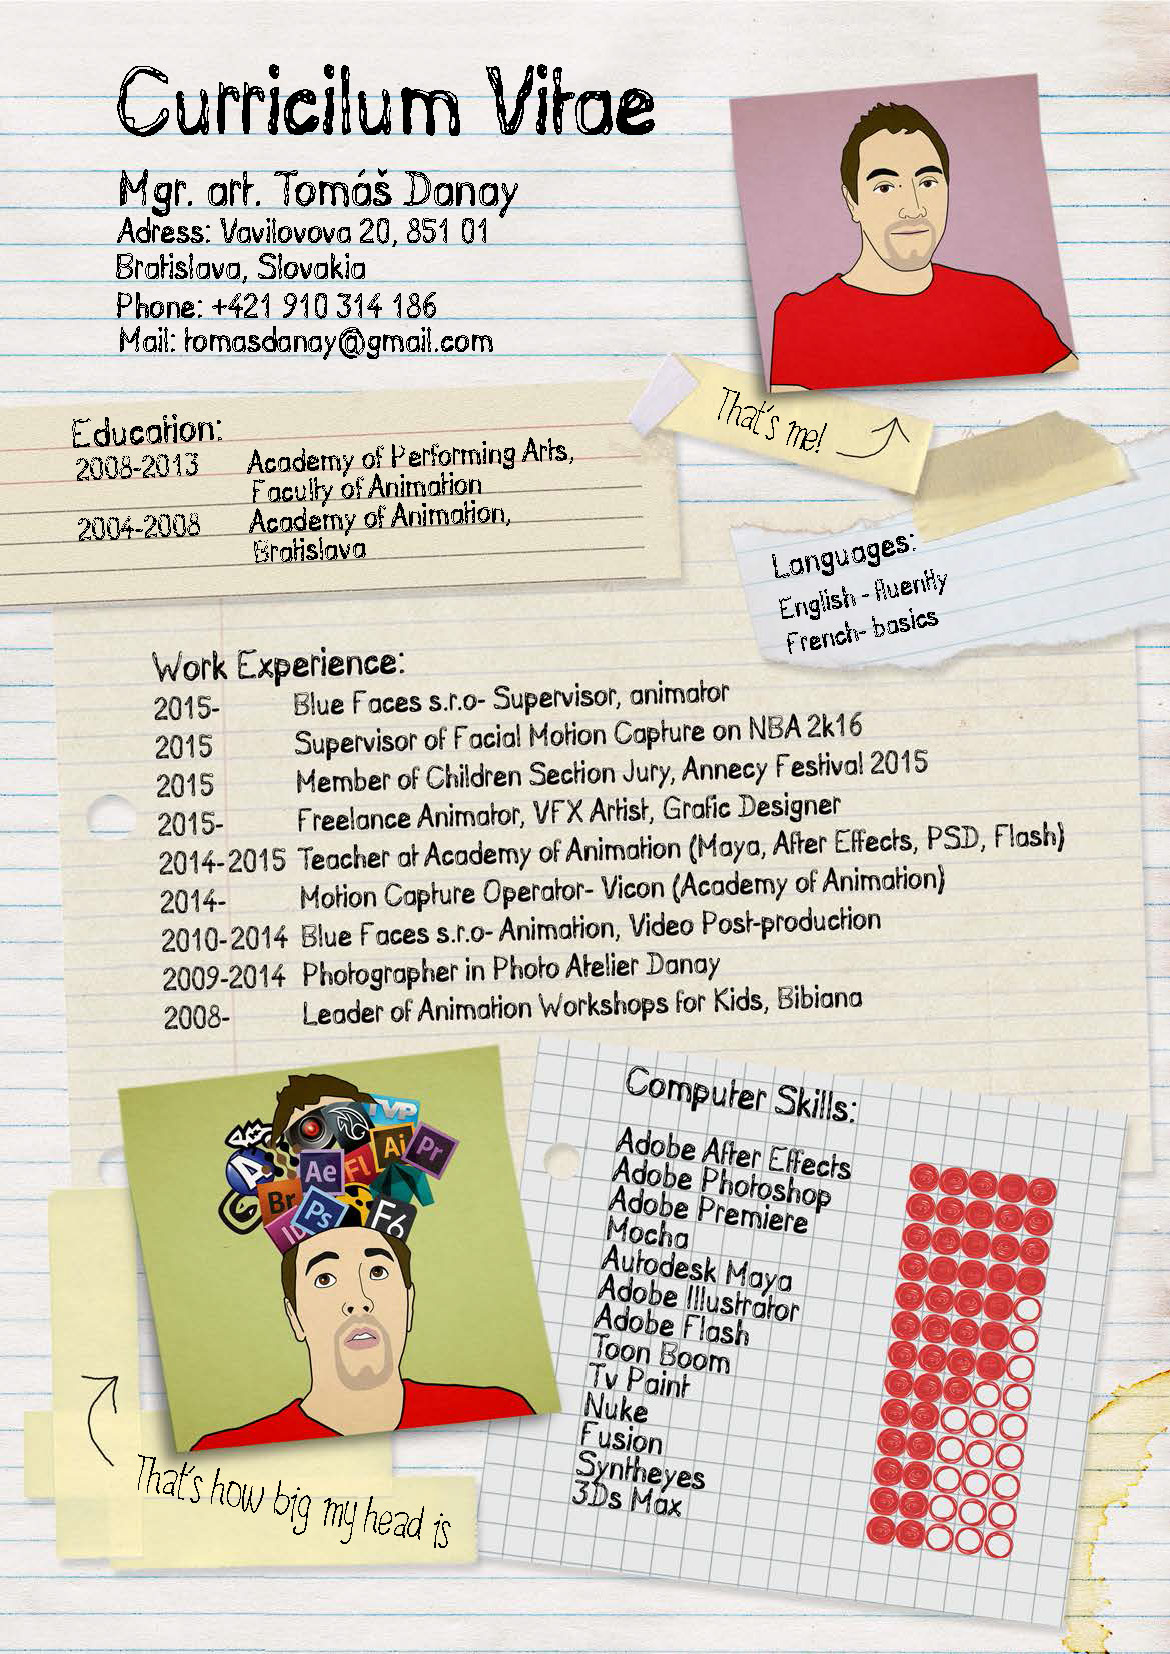 Curricilum Vitae
Mgr. art. Tomáš Danay
Adress: Vavilovova 20, 851 01
Bratislava, Slovakia
Phone: +421 910 314 186
Mail: tomasdanay@gmail.com
That's me!
Education:
2008-2013 Academy of Performing Arts,
Faculty of Animation
2004-2008 Academy of Animation,
Bratislava
Languages:
English - fluently
French- basics
Work Experience:
2015- Blue Faces s.r.o- Supervisor, animator
2015 Supervisor of Facial Motion Capture on NBA 2k16
2015 Member of Children Section Jury, Annecy Festival 2015
2015- Freelance Animator, VFX Artist, Grafic Designer
2014-2015 Teacher at Academy of Animation (Maya, After Effects, PSD, Flash)
2014- Motion Capture Operator- Vicon (Academy of Animation)
2010-2014 Blue Faces s.r.o- Animation, Video Post-production
2009-2014 Photographer in Photo Atelier Danay
2008- Leader of Animation Workshops for Kids, Bibiana
TVP
Ai
Pr
Ae
Fl
A
Br
Ps
F6
ID
That's how big my head is
Computer Skills:
Adobe After Effects
Adobe Photoshop
Adobe Premiere
Mocha
Autodesk Maya
Adobe Illustrator
Adobe Flash
Toon Boom
Tv Paint
Nuke
Fusion
Syntheyes
3Ds Max